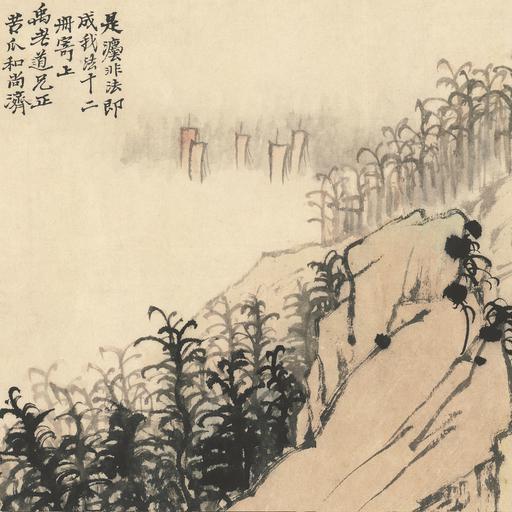 是瀍非法即
成我法十二
册寄上
禹老道兄正
苦瓜和尚濟